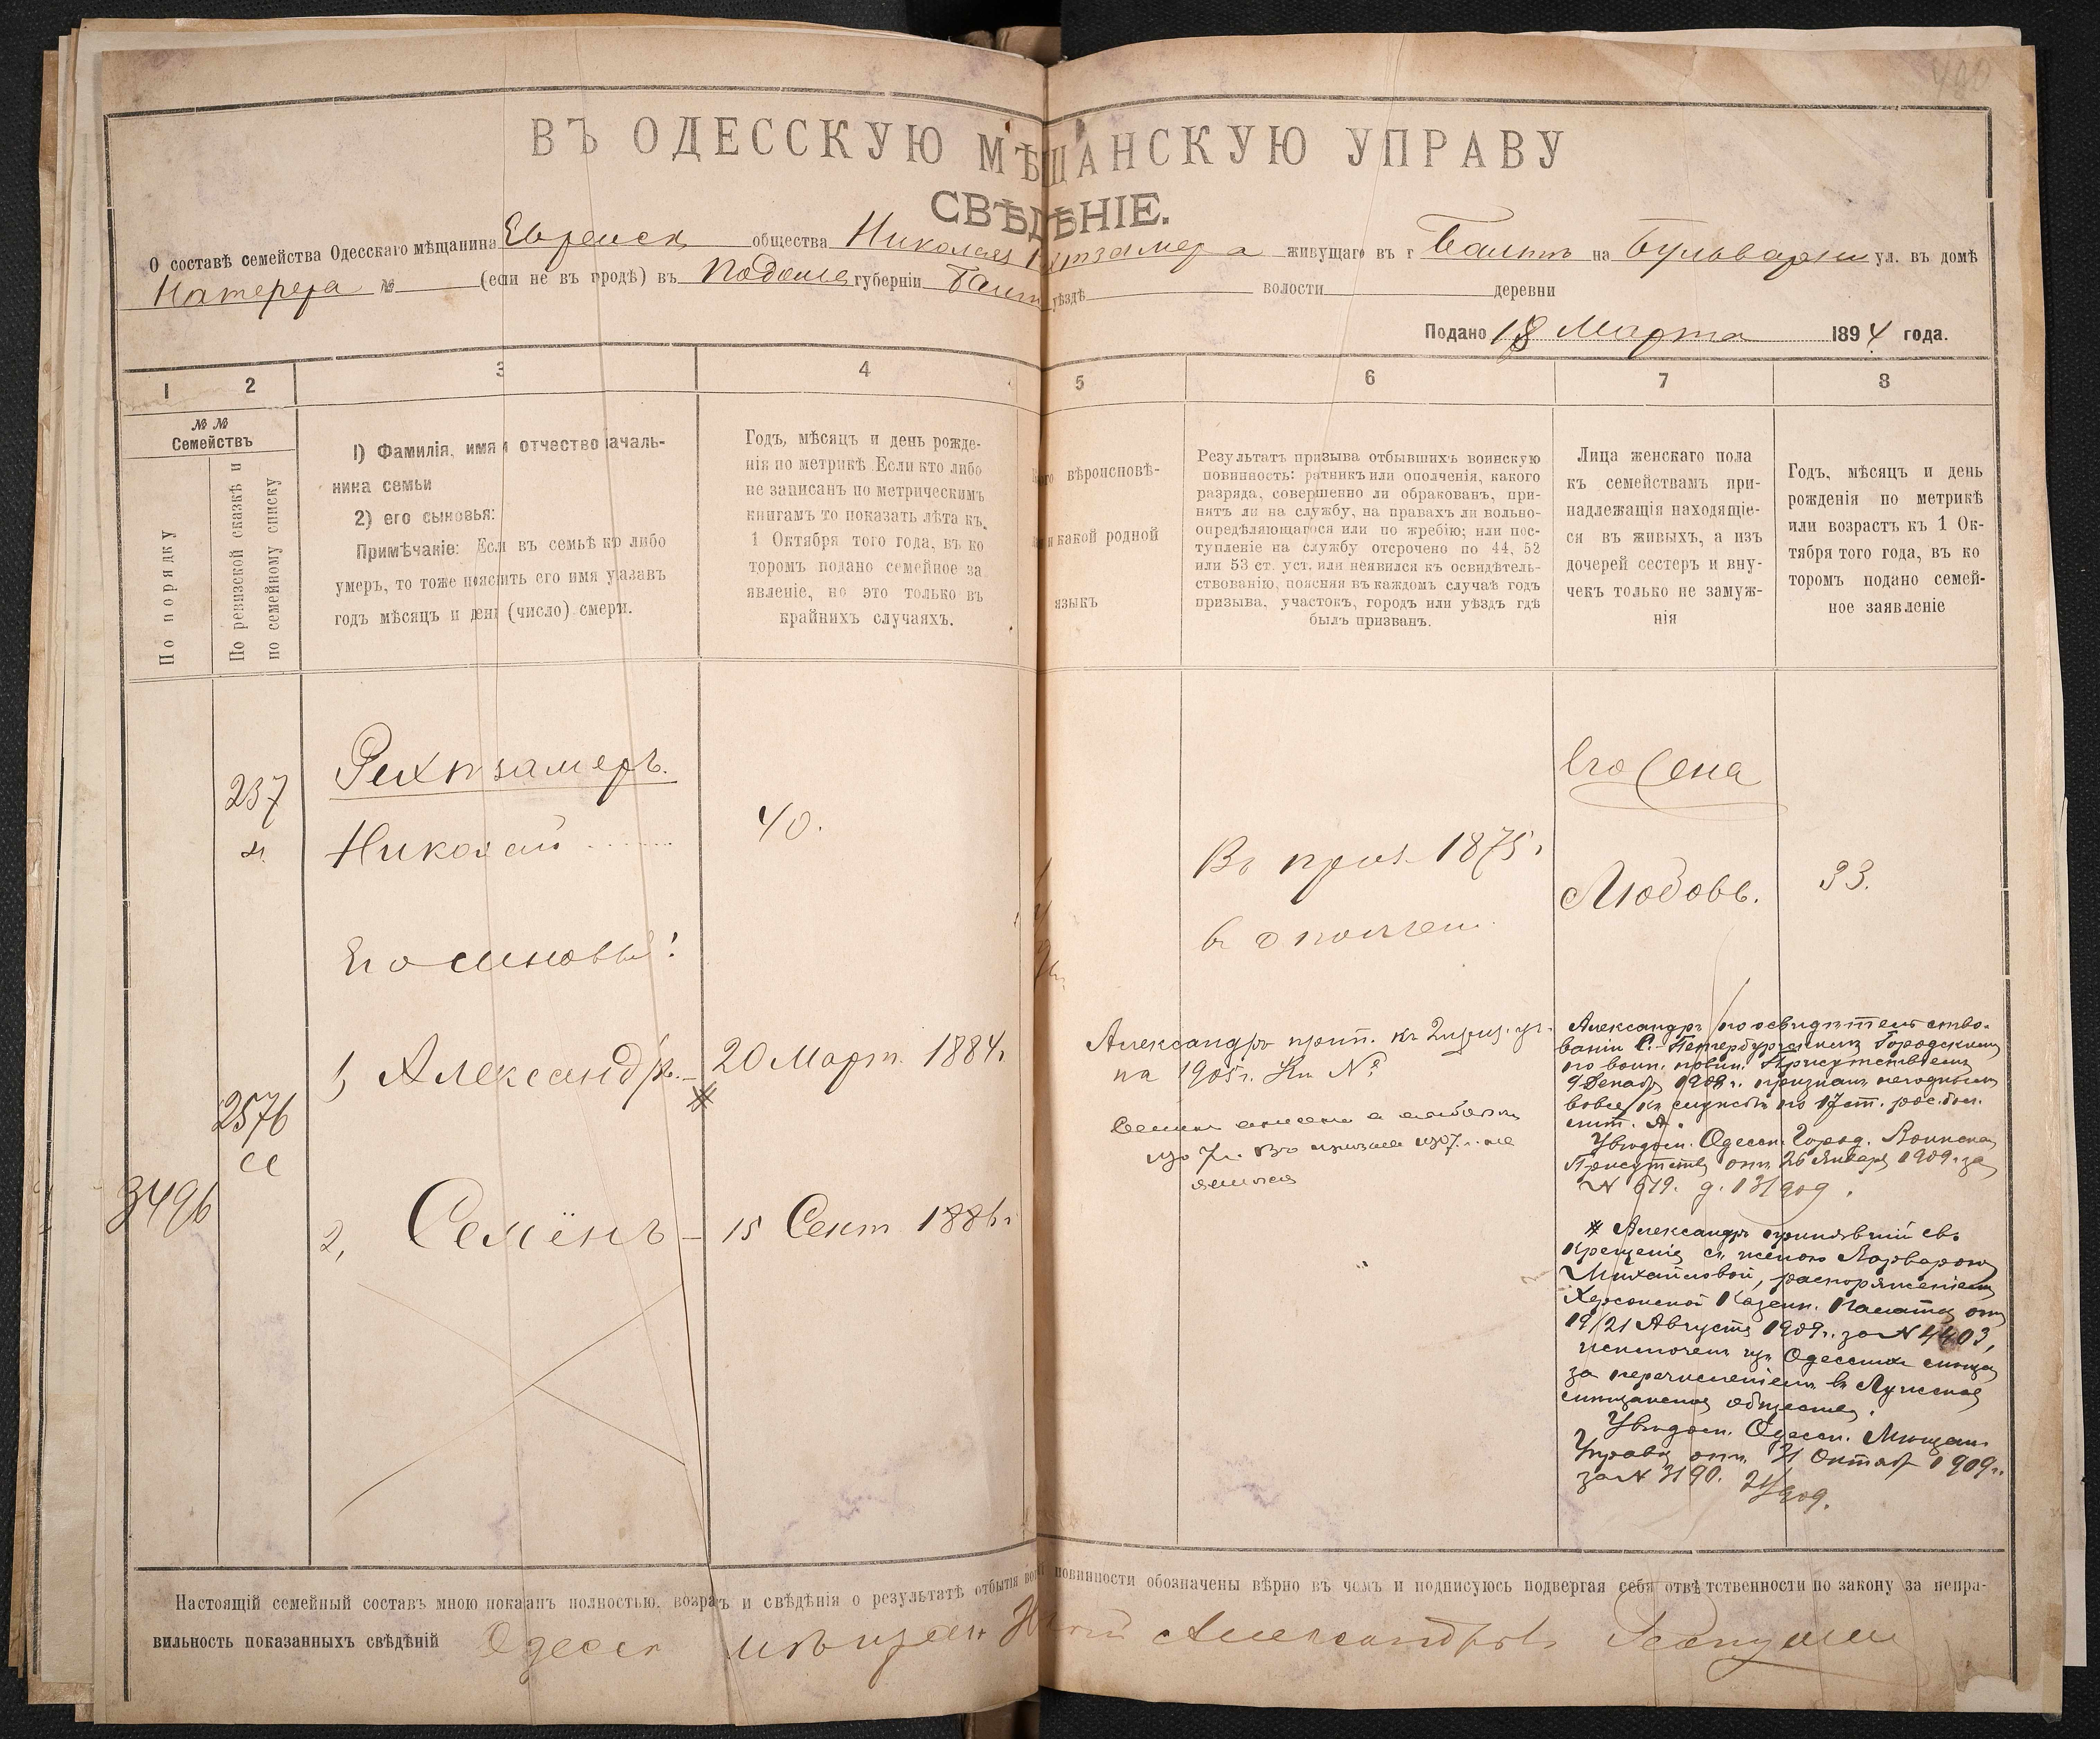 490
ВЪ ОДЕССКУЮ МѢЩАНСКУЮ УПРАВУ
СВѢДѢНІЕ.
О составѣ семейства Одесскаго мѣщанина Еврейск общества Николая живущаго въ г Балтѣ на Бульварн ул. въ домѣ
№ (если не въ городѣ) въ Подольс губерніи Балт уѣздѣ волости деревни
Подано 18 Марта 1894 года.
1 2 3 4 5 6 7 8
№ №
Семействъ
По порядку
По ревизской сказкѣ и
по семейному списку
1) Фамилія, имя и отчество началь-
ника семьи
2) его сыновья:
Примѣчаніе: Если въ семьѣ кто либо
умеръ, то тоже пояснить его имя указавъ
годъ мѣсяцъ и день (число) смерти.
Годъ, мѣсяцъ и день рожде-
нія по метрикѣ Если кто либо
не записанъ по метрическимъ
книгамъ то показать лѣта къ
1 Октября того года, въ ко
торомъ подано семейное за
явленіе, но это только въ
крайнихъ случаяхъ.
вѣроисповѣ-
и какой родной
языкъ
Результатъ призыва отбывшихъ воинскую
повинность: ратникъ или ополченія, какого
разряда, совершенно ли обракованъ, при-
нятъ ли на службу, на правахъ ли вольно-
опредѣляющагося или по жребію; или пос-
тупленіе на службу отсрочено по 44, 52
или 53 ст. уст. или неявился къ освидѣтель-
ствованію, поясняя въ каждомъ случаѣ годъ
призыва, участокъ, городъ или уѣздъ гдѣ
былъ призванъ.
Лица женскаго пола
къ семействамъ при-
надлежащія находящіе-
ся въ живыхъ, а изъ
дочерей сестеръ и вну-
чекъ только не замуж-
нія
Годъ, мѣсяцъ и день
рожденія по метрикѣ
или возрастъ къ 1 Ок-
тября того года, въ ко
торомъ подано семей-
ное заявленіе
237
Рихтзамеръ.
Николай
40.
Въ приз. 1875 г
в ополчен.
Его жена
Любовь.
33.
Его сыновья:
2576
1, Александръ. 20 Март. 1884г
Александръ прип. къ 2 приз. уч.
на 1905г. Кн №
1907г. Въ призыв 1907г. не
явился
3496
2, Семёнъ 15 Сент 1886г
Александръ по освидѣтельство-
ваніи С.-Петербургскимъ Городскимъ
по воин. повин. Присутствіемъ
9 Декабр 1908г. признанъ негоднымъ
вовсе къ службѣ по 17 ст. рос. бол.
лит. А.
Увѣдом. Одесск. Город. Воинска
Присутств отъ 26 Января 1909г. за
№ 679. д. 13/909.
* Александръ принявшій св.
крещеніе съ женою Варварою
Михайловой, распоряженіемъ
Херсонской Казенн. Палаты отъ
19/21 Августа 1909г. за № 4403,
исключенъ изъ Одесских мѣщан
за перечисленіемъ въ Лужское
мѣщанское общество.
Увѣдом. Одесск. Мѣщан.
Управы отъ 31 Октябр 1909г.
за № 3190. 21/909.
Настоящій семейный составъ мною показанъ полностью, возрастъ и свѣдѣнія о результатѣ отбытія воин повинности обозначены вѣрно въ чемъ и подписуюсь подвергая себя отвѣтственности по закону за непра-
вильность показанныхъ свѣдѣній Одесск мѣщан Александровъ